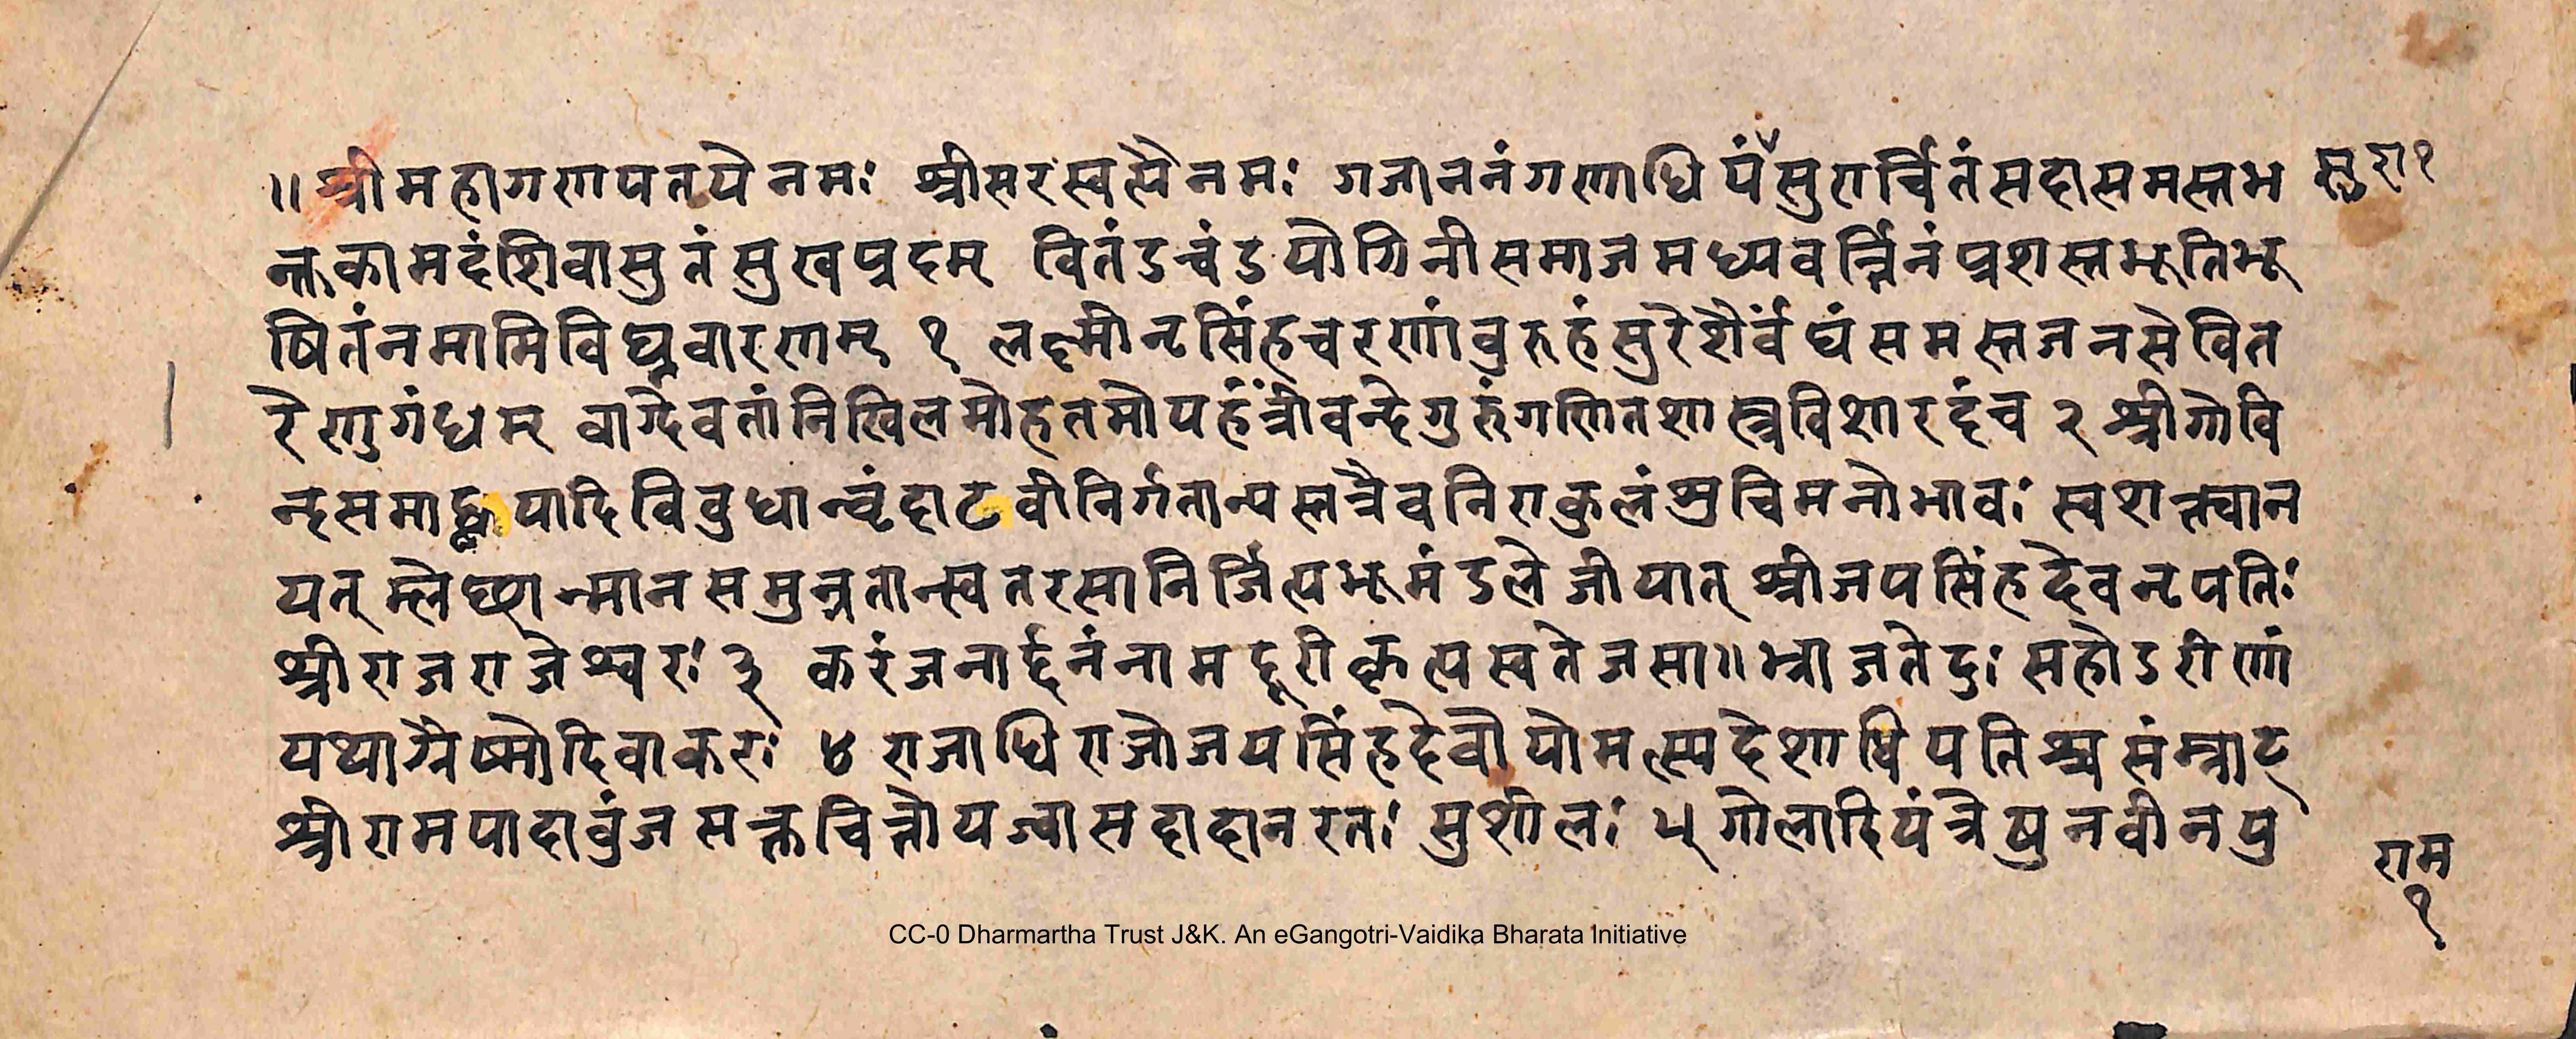 ॥ श्रीमहागणपतये नमः श्रीसरस्वत्यै नमः गजाननंगणाधिपंसुरार्चितंसदासमस्तभ सुरा१
क्तकामदंशिवासुतंसुखप्रदम् वितंडचंडयोगिनीसमाजमध्यवर्त्तिनंप्रशस्तभूतिभू
षितंनमामिविघ्नवारणम् १ लक्ष्मीनृसिंहचरणांबुरुहंसुरेशैर्वंद्यंसमस्तजनसेवित
रेणुगंधम् वाग्देवतांनिखिलमोहतमोपहंत्रीवन्देगुरुंगणितशास्त्रविशारदंच २ श्रीगोवि
न्दसमाह्वयादिविबुधान्वृंदाटवीनिर्गतान्यस्तत्रैवनिराकुलंशुचिमनोभावः स्वशक्त्यान
यत् म्लेछान्मानसमुन्नतान्स्वतरसानिर्जित्यभूमंडलेजीयात् श्रीजयसिंहदेवनृपतिः
श्रीराजराजेश्वरः ३ करंजनार्दनंनामदूरीकृत्यस्वतेजसा॥ भ्राजतेदुःसहोऽरीणां
यथाग्रैष्मोदिवाकरः ४ राजाधिराजोजयसिंहदेवोयोमत्स्यदेशाधिपतिश्चसंम्राट्
श्रीरामपादांबुजसक्तचित्तोयज्वासदादानरतः सुशीलः ५ गोलादियंत्रेषुनवीनयु
राम
१
CC-0 Dharmartha Trust J&K. An eGangotri-Vaidika Bharata Initiative